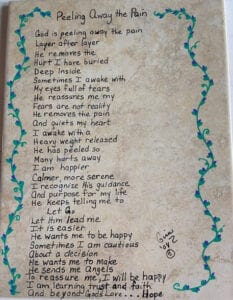 Peeling Away the Pain
God is peeling away the pain
Layer after layer
He removes the
Hurt I have buried
Deep Inside
Sometimes I awake with
My eyes full of tears
He reassures me my
Fears are not reality
He removes the pain
And quiets my heart
I awake with a
Heavy weight released
He has peeled so
Many hurts away
I am happier
Calmer, more serene
I recognize His guidance
And purpose for my life
He keeps telling me to
Let Go
Let Him lead me
It is easier
He wants me to be happy
Sometimes I am cautious
About a decision
He wants me to make
He sends me Angels
To reassure me, I will be happy
I am learning trust and faith
And beyond God's Love... Hope